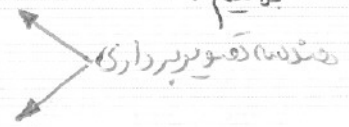 هندسه تصویربرداری